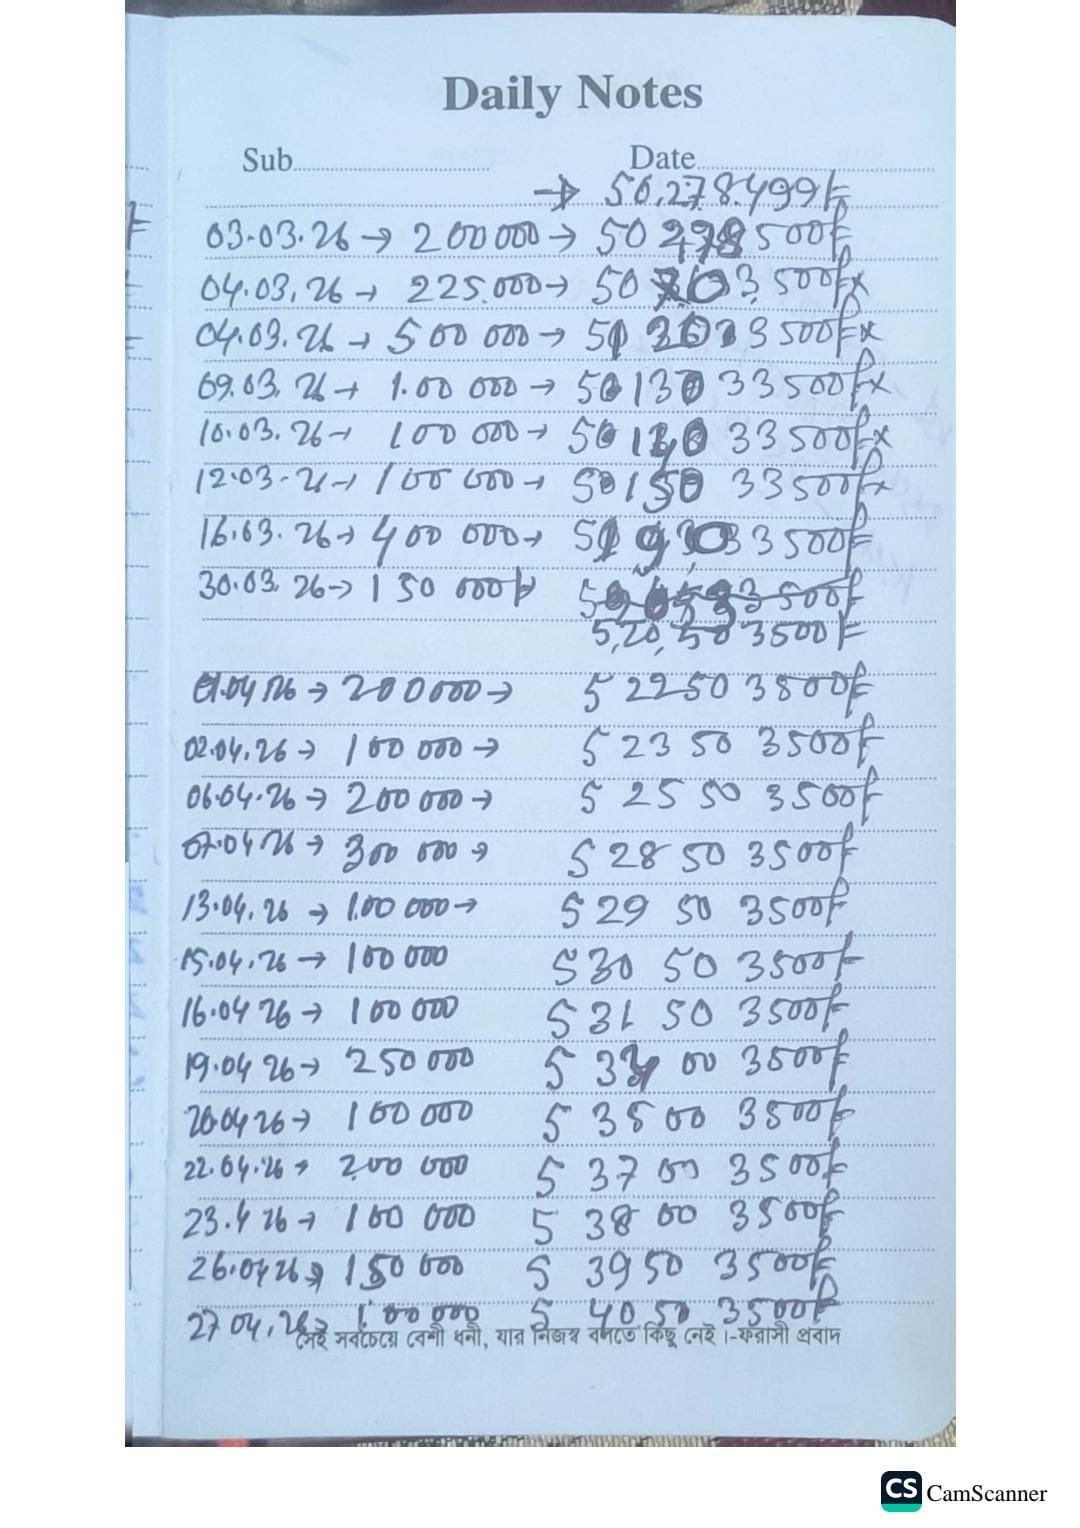 Daily Notes
Sub.................... Date....................
→ 50,278.499F
03.03.26 → 200000 → 50 500F
04.03.26 → 225.000 → 50 3,500Fx
04.03.26 → 500 000 → 3 500Fx
09.03.26 → 1.00 000 → 50130 33500Fx
10.03.26 → 100 000 → 33500Fx
12.03-26 → 100 000 → 50150 33500Fx
16.03.26 → 400 000 → 33500F
30.03.26 → 150 000F
5,20,50 3500F
01.04 26 → 200000 → 5 2250 3800F
02.04.26 → 100 000 → 5 23 50 3500F
06.04.26 → 200 000 → 5 25 50 3500F
07.04 26 → 300 000 → 5 28 50 3500F
13.04.26 → 1.00 000 → 5 29 50 3500F
15.04.26 → 100 000 530 50 3500F
16.04 26 → 100 000 5 31 50 3500F
19.04 26 → 250 000 5 34 00 3500F
20.04 26 → 100 000 5 35 00 3500F
22.04.26 → 200 000 5 37 00 3500F
23.4 26 → 100 000 5 38 00 3500F
26.04 26 → 150 000 5 3950 3500F
27 04.26 → 1.00 000 5 40 50 3500F
সেই সবচেয়ে বেশী ধনী, যার নিজস্ব বলতে কিছু নেই।-ফরাসী প্রবাদ
CS CamScanner